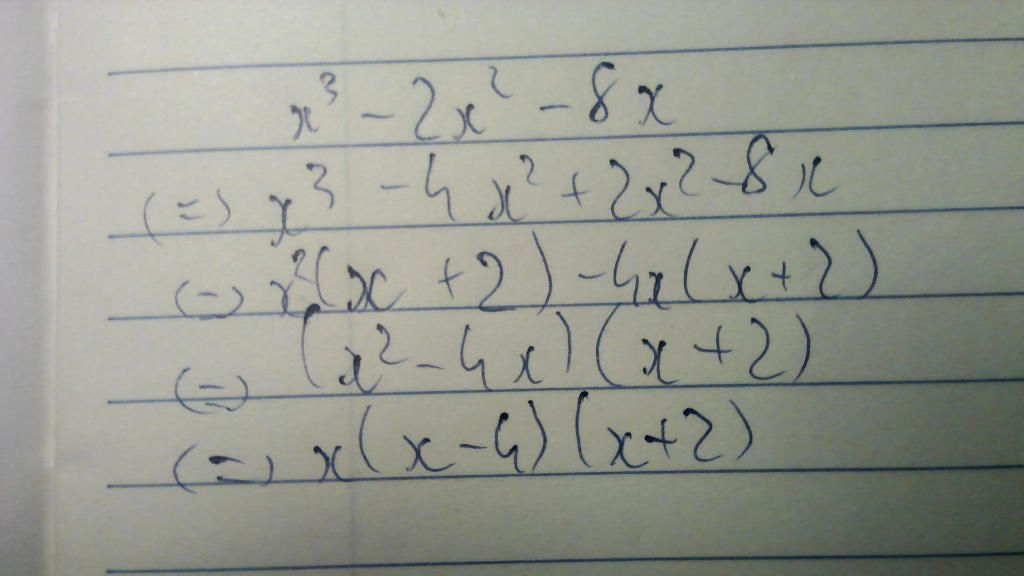 x³ - 2x² - 8x
(=) x³ - 4x² + 2x² - 8x
(=) x²(x + 2) - 4x(x + 2)
(=) (x² - 4x)(x + 2)
(=) x(x - 4)(x + 2)